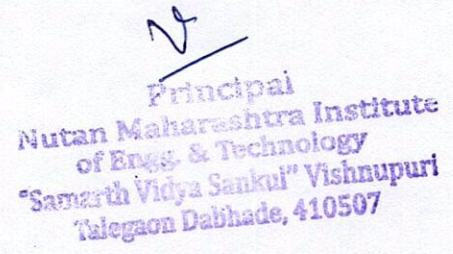 Principal
Nutan Maharashtra Institute
of Engg. & Technology
"Samarth Vidya Sankul" Vishnupuri
Talegaon Dabhade, 410507